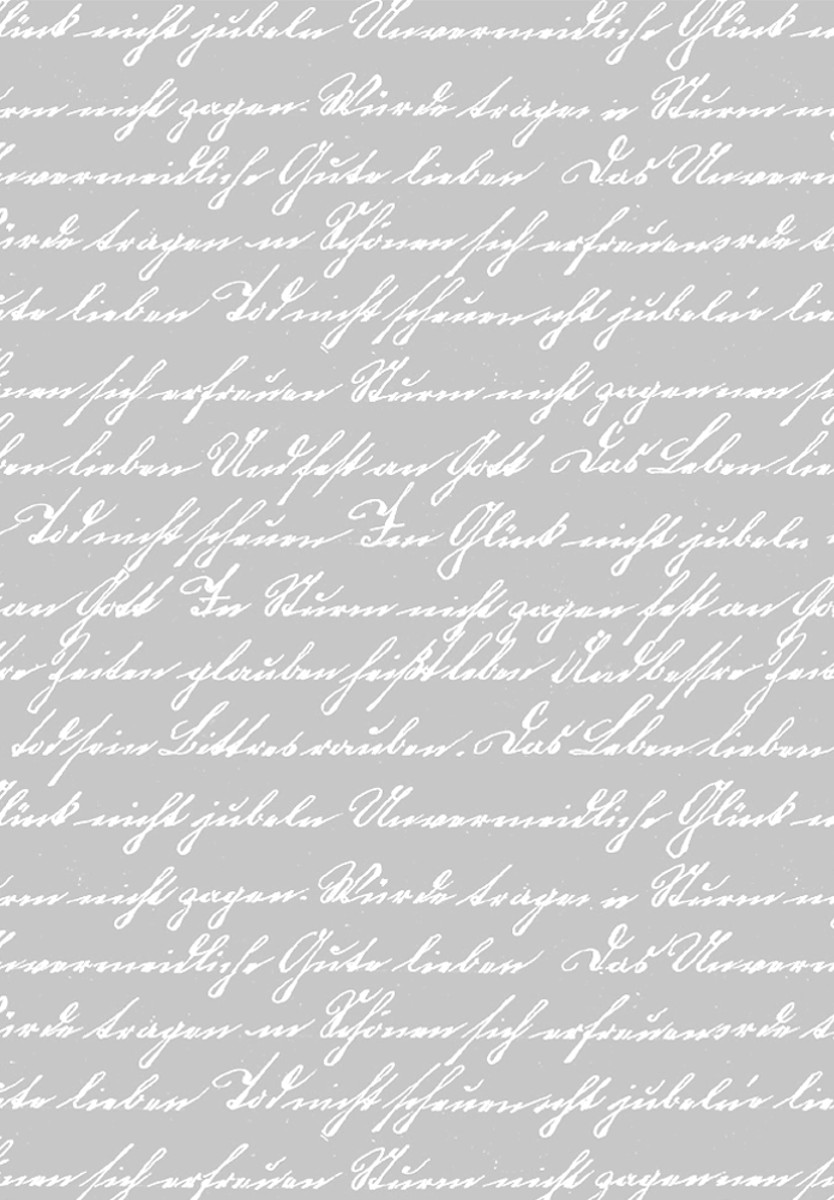 Glück nicht jubeln Unvermeidliche Glück
nicht zagen. Würde tragen in Sturm
Unvermeidliche Gute lieben Das
Würde tragen in Schönen sich erfreuen
lieben Tod nicht scheuen jubeln
sich erfreuen Sturm nicht zagen
lieben Und fest an Gott Das Leben
Tod nicht scheuen Im Glück nicht jubeln
an Gott In Sturm nicht zagen fest an
Zeiten glauben heißt leben Und bessre
tod sein Bittres rauben. Das Leben lieben
Glück nicht jubeln Unvermeidliche Glück
nicht zagen. Würde tragen in Sturm
Unvermeidliche Gute lieben Das
Würde tragen in Schönen sich erfreuen
lieben Tod nicht scheuen jubeln
sich erfreuen Sturm nicht zagen